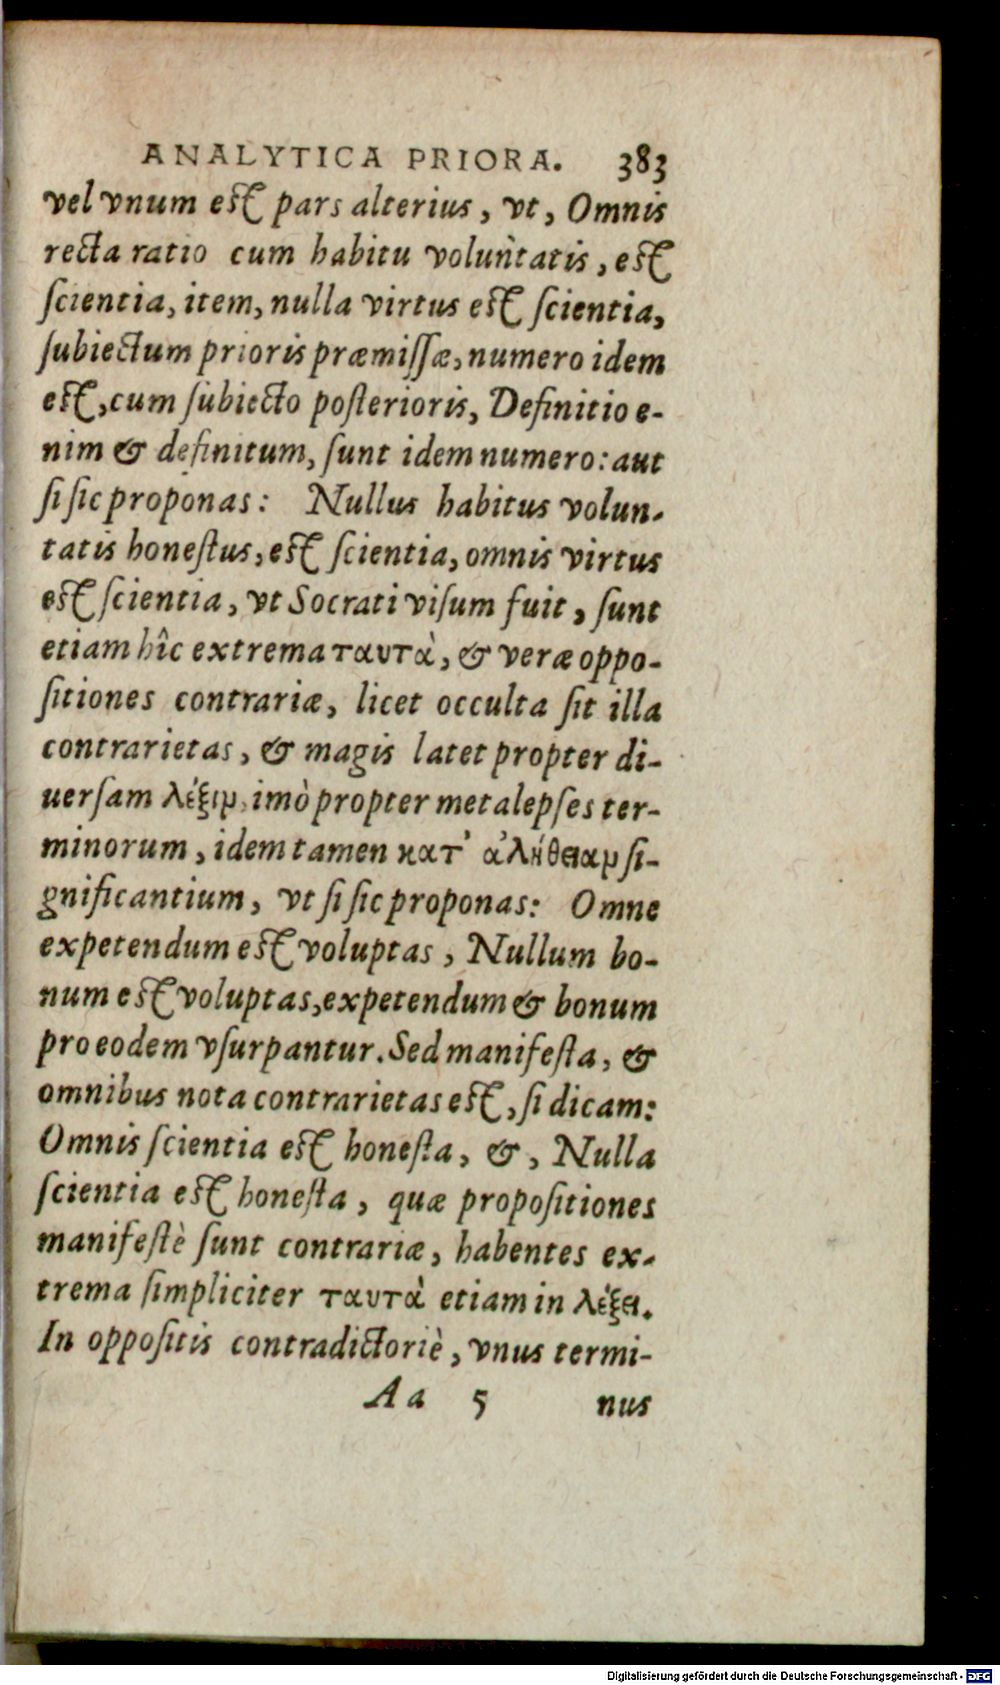 ANALYTICA PRIORA. 383
vel vnum est pars alterius, vt, Omnis
recta ratio cum habitu voluntatis, est
scientia, item, nulla virtus est scientia,
subiectum prioris præmissæ, numero idem
est, cum subiecto posterioris, Definitio e-
nim & definitum, sunt idem numero: aut
si sic proponas: Nullus habitus volun-
tatis honestus, est scientia, omnis virtus
est scientia, vt Socrati visum fuit, sunt
etiam hîc extrema ταυτὰ, & veræ oppo-
sitiones contrariæ, licet occulta sit illa
contrarietas, & magis latet propter di-
uersam λέξιν, imò propter metalepses ter-
minorum, idem tamen κατ' ἀλήθειαν si-
gnificantium, vt si sic proponas: Omne
expetendum est voluptas, Nullum bo-
num est voluptas, expetendum & bonum
pro eodem vsurpantur. Sed manifesta, &
omnibus nota contrarietas est, si dicam:
Omnis scientia est honesta, &, Nulla
scientia est honesta, quæ propositiones
manifestè sunt contrariæ, habentes ex-
trema simpliciter ταυτὰ etiam in λέξει.
In oppositis contradictoriè, vnus termi-
Aa 5 nus
Digitalisierung gefördert durch die Deutsche Forschungsgemeinschaft - DFG